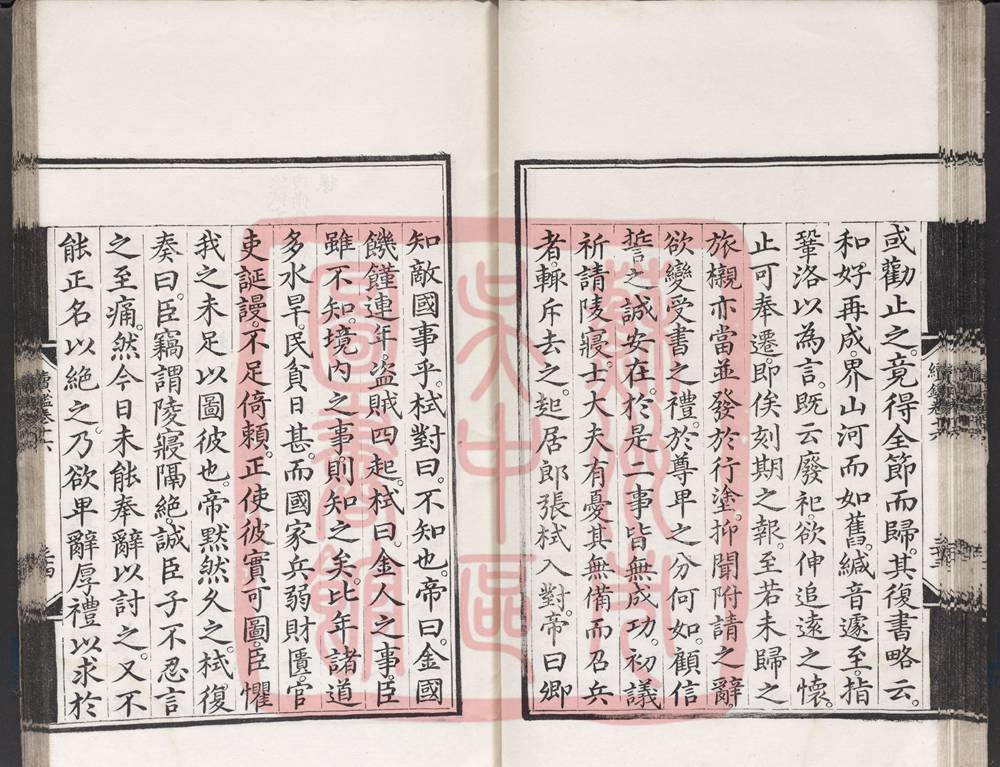 或勸止之。竟得全節而歸。其復書略云。
和好再成。界山河而如舊。緘音遽至。指
鞏洛以為言。既云廢祀。欲伸追遠之懷。
止可奉遷。即俟刻期之報。至若未歸之
旅櫬。亦當並發於行塗。抑聞附請之辭。
欲變受書之禮。於尊卑之分何如。顧信
誓之誠安在。於是二事皆無成功。初議
祈請陵寢。士大夫有憂其無備而召兵
者。輒斥去之。起居郎張栻入對。帝曰。卿
知敵國事乎。栻對曰。不知也。帝曰。金國
饑饉連年。盜賊四起。栻曰。金人之事。臣
雖不知。境內之事則知之矣。比年諸道
多水旱。民貧日甚。而國家兵弱財匱。官
吏誕謾。不足倚賴。正使彼實可圖。臣懼
我之未足以圖彼也。帝默然久之。栻復
奏曰。臣竊謂陵寢隔絕。誠臣子不忍言
之至痛。然今日未能奉辭以討之。又不
能正名以絕之。乃欲卑辭厚禮以求於